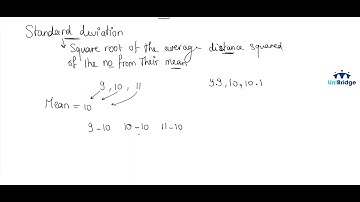 Standard deviation
↳ Square root of the average distance squared
of the no from their mean
9, 10, 11
9.9, 10, 10.1
Mean = 10
9-10 10-10 11-10
UniBridge